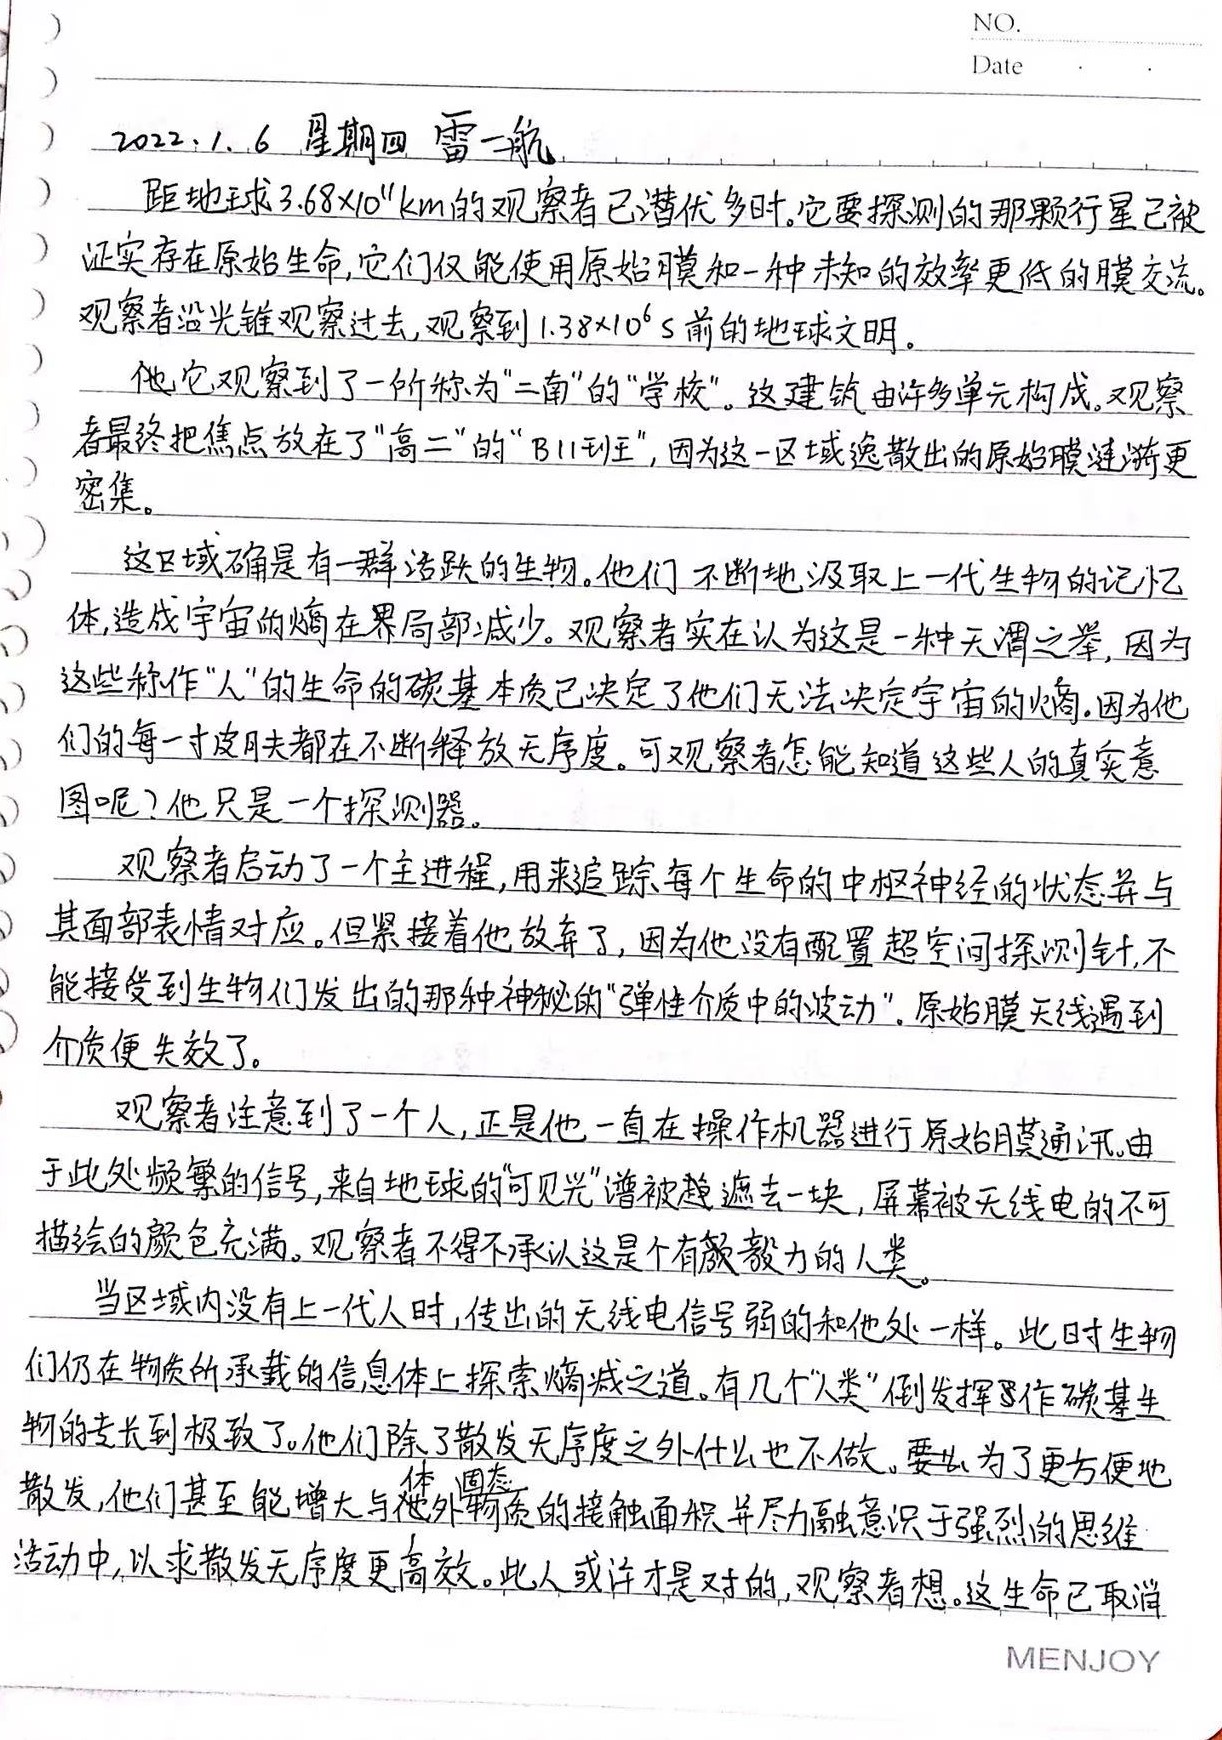 NO.
Date
2022.1.6 星期四 雷一航
距地球3.68×10¹¹km的观察者已潜伏多时。它要探测的那颗行星已被
证实存在原始生命,它们仅能使用原始膜和一种未知的效率更低的膜交流。
观察者沿光锥观察过去,观察到1.38×10⁶s前的地球文明。
他它观察到了一所称为"二南"的"学校"。这建筑由许多单元构成。观察
者最终把焦点放在了"高二"的"B11班",因为这一区域逸散出的原始膜涟漪更
密集。
这区域确是有一群活跃的生物。他们不断地汲取上一代生物的记忆
体,造成宇宙的熵在界局部减少。观察者实在认为这是一种无谓之举,因为
这些称作"人"的生命的碳基本质已决定了他们无法决定宇宙的熵。因为他
们的每一寸皮肤都在不断释放无序度。可观察者怎能知道这些人的真实意
图呢?他只是一个探测器。
观察者启动了一个主进程,用来追踪每个生命的中枢神经的状态并与
其面部表情对应。但紧接着他放弃了,因为他没有配置超空间探测针,不
能接受到生物们发出的那种神秘的"弹性介质中的波动"。原始膜天线遇到
介质便失效了。
观察者注意到了一个人,正是他一直在操作机器进行原始膜通讯。由
于此处频繁的信号,来自地球的"可见光"谱被遮去一块,屏幕被无线电的不可
描绘的颜色充满。观察者不得不承认这是个有毅力的人类。
当区域内没有上一代人时,传出的无线电信号弱的和他处一样。此时生物
们仍在物质所承载的信息体上探索熵减之道。有几个"人类"倒发挥作碳基生
物的专长到极致了。他们除了散发无序度之外什么也不做。要么为了更方便地
散发,他们甚至能增大与体外固态物质的接触面积并尽力融意识于强烈的思维
活动中,以求散发无序度更高效。此人或许才是对的,观察者想。这生命已取消
MENJOY